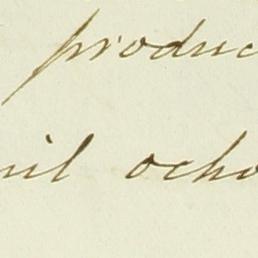 produc
il ocho